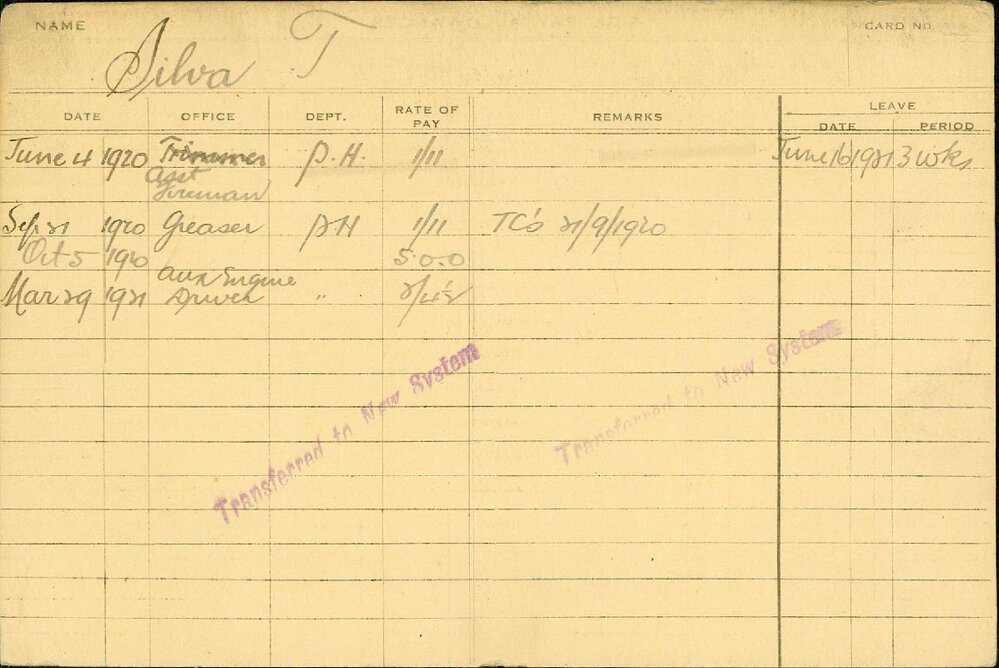 NAME CARD NO.
Silva T
DATE OFFICE DEPT. RATE OF PAY REMARKS LEAVE
DATE PERIOD
June 4 1920 Trimmer P.H. 1/11 June 16 1921 3 wks
Asst
Fireman
Sep 21 1920 Greaser PH 1/11 TC's 21/9/1920
Oct 5 1920 5.0.0
Aux Engine
Mar 29 1921 Driver "
Transferred to New System
Transferred to New System